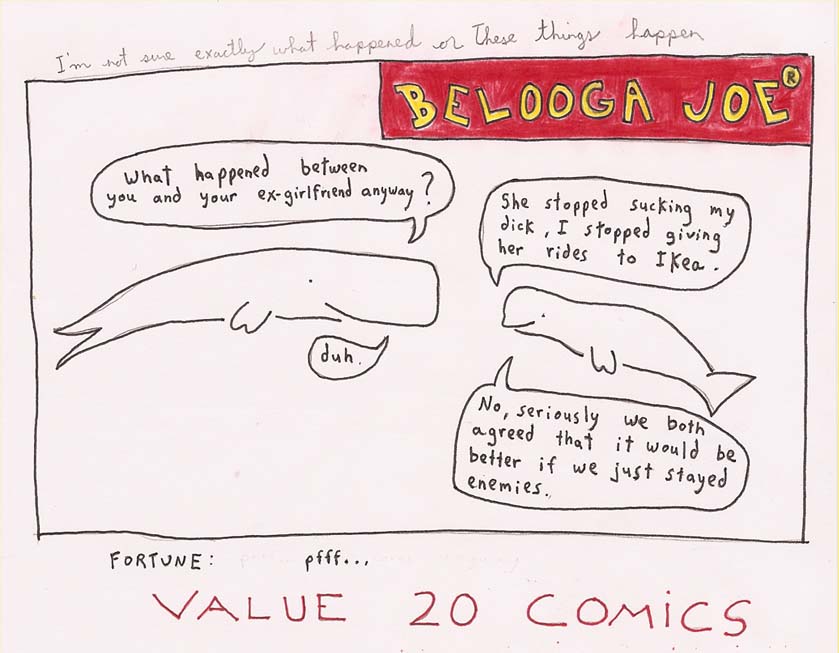 I'm not sure exactly what happened or These things happen
BELOOGA JOE®
What happened between
you and your ex-girlfriend anyway?
She stopped sucking my
dick, I stopped giving
her rides to IKea.
duh.
No, seriously we both
agreed that it would be
better if we just stayed
enemies.
FORTUNE: pfff...
VALUE 20 COMICS